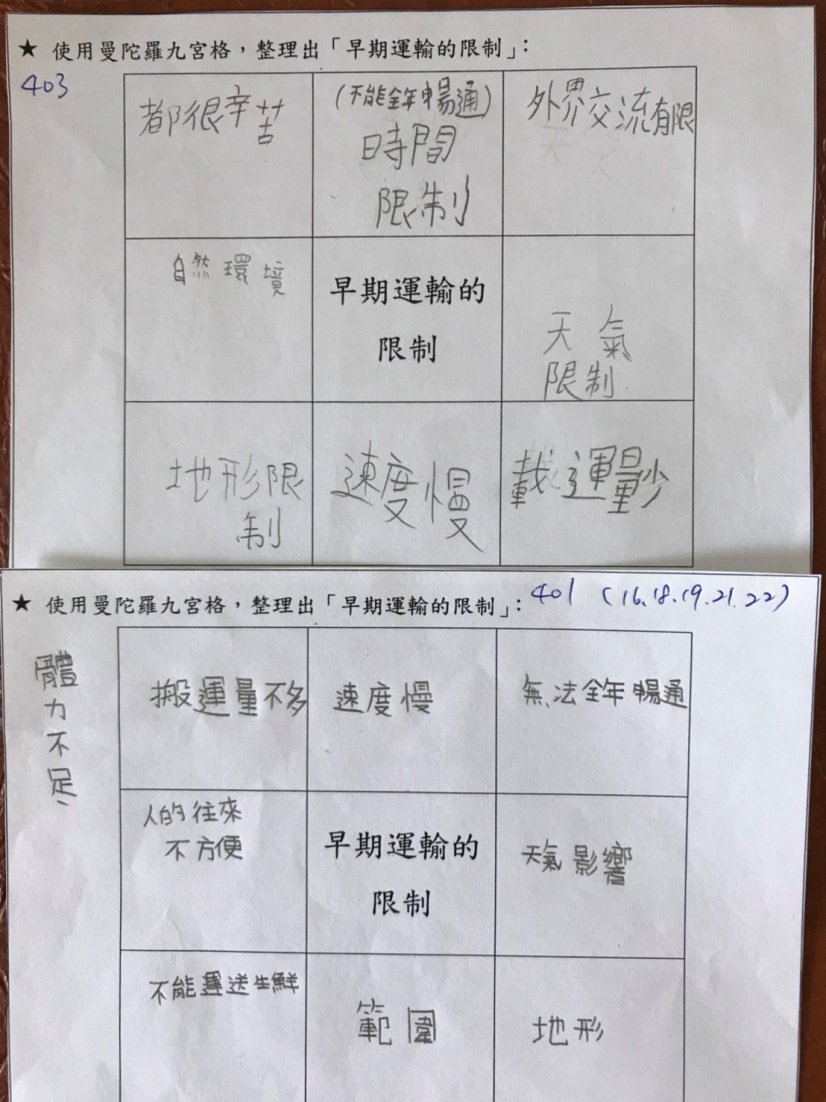 ★ 使用曼陀羅九宮格，整理出「早期運輸的限制」：
403
都很辛苦
(不能全年暢通)
時間
限制
外界交流有限
自然環境
早期運輸的
限制
天氣
限制
地形限
制
速度慢
載運量少
★ 使用曼陀羅九宮格，整理出「早期運輸的限制」：
401 (16.18.19.21.22)
體力不足、
搬運量不多
速度慢
無法全年暢通
人的往來
不方便
早期運輸的
限制
天氣影響
不能運送生鮮
範圍
地形